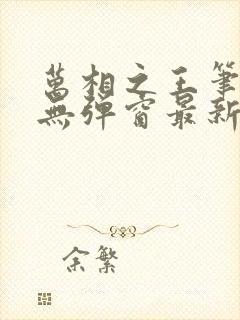 萬相之王筆
無彈窗最新
余繁